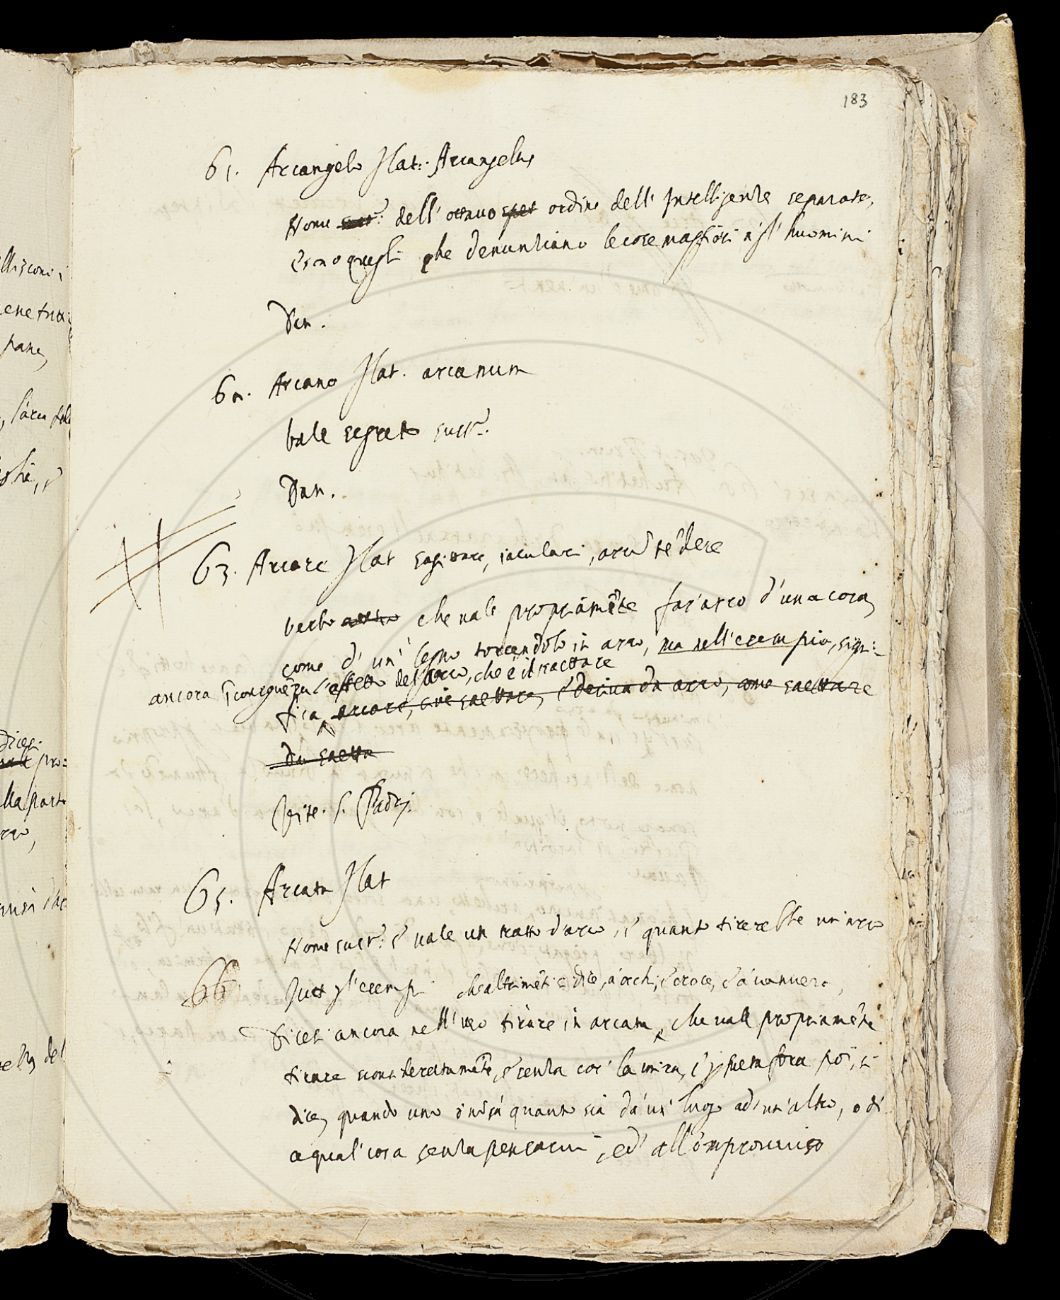 183
61. Arcangelo Lat: Arcangelus
Nome sust.º dell' ottavo spet ordine dell' Intelligenze separate,
e sono quegli che denunziano le cose maggiori agl' huomini
Dan.
62. Arcano Lat. arcanum
vale segreto sust.º
Dan.
63. Arcare Lat sagittare, iaculari, arcū tēdere
verbo attivo che vale propriamēte far arco d'una cosa,
come d' un' legno torcendolo in arco, ma nell' esempio, signi=
ancora l'effetto dell'arco, che è il saettare
fica arcare, cioè saettare, e deriva da arco, come saettare
da saetta
Vite. S. Padri.
65. Arcata Lat
Nome sust.º e vale un tratto d'arco, e quanto tirerebbe un'arco
66.
che altrimēti si dice, a occhi, e croce, e a vanvera,
Dicesi ancora nell' uso tirare in arcata, che vale propriamēte
tirare sconsideratamēte, e senza cor la mira, e p metafora poi, si
dice, quando uno quanto sia da un' luogo ad un' altro, o di
qual' cosa senza pensarvi, ed all' improvviso